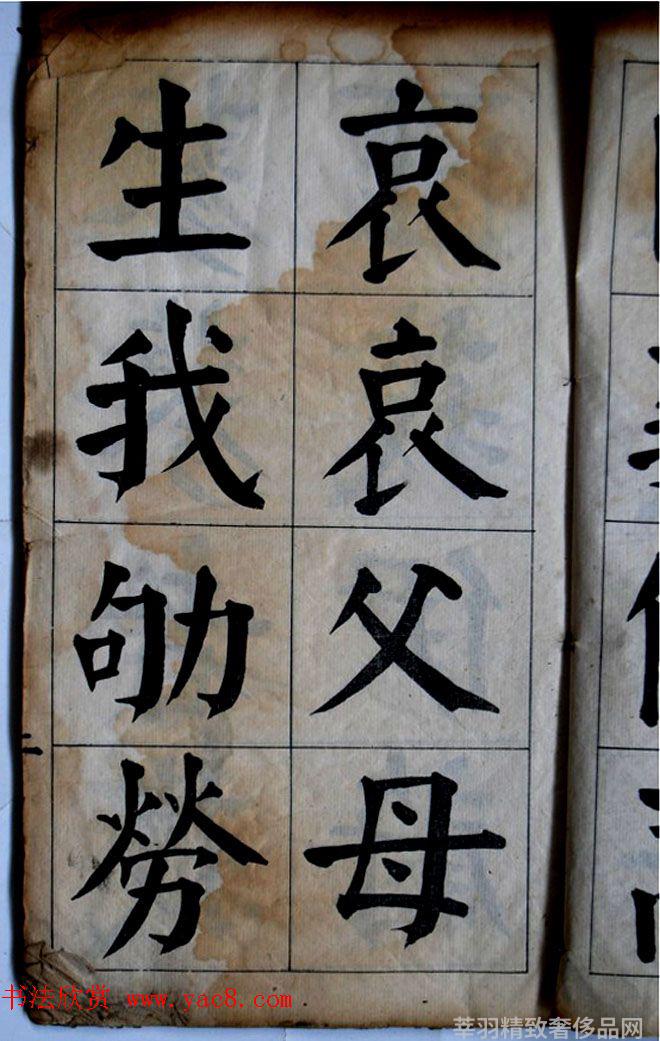 哀哀父母
生我劬勞
书法欣赏 www.yac8.com
莘羽精致奢侈品网